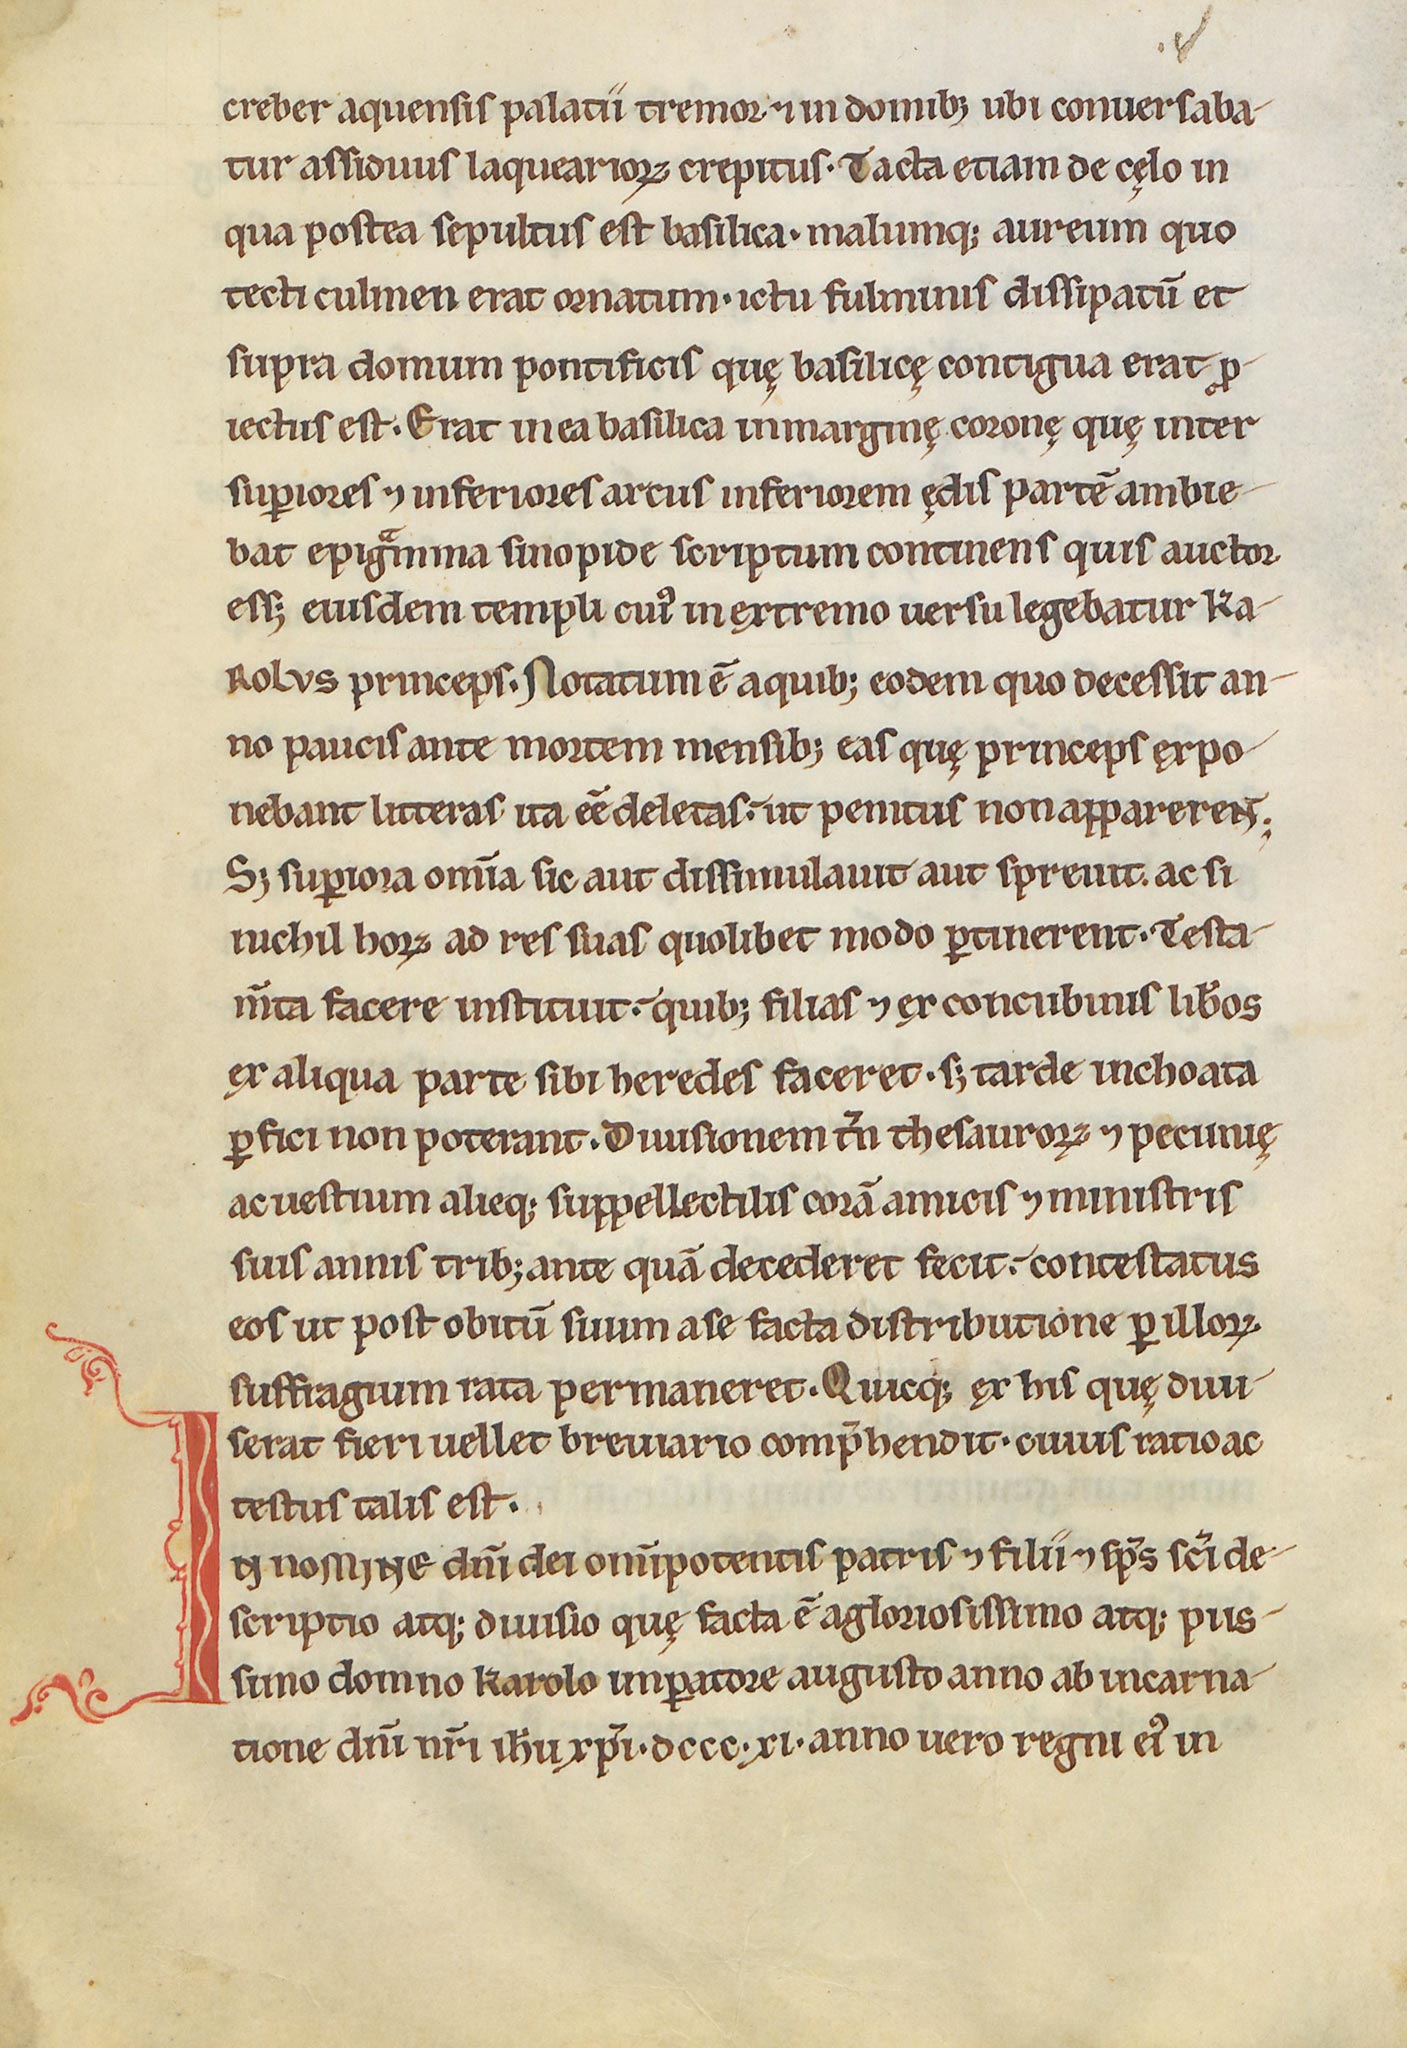 creber aquensis palatii tremor ⁊ in domib; ubi conuersaba-
tur assiduus laqueariorꝝ crepitus. Tacta etiam de cęlo in
qua postea sepultus est basilica. malumq; aureum quo
tecti culmen erat ornatum. ictu fulminis dissipatū et
supra domum pontificis quę basilicę contigua erat ꝓ-
iectus est. Erat in ea basilica in marginę coronę quę inter
suꝑiores ⁊ inferiores arcus inferiorem ędis partē ambie-
bat epigͣmma sinopide scriptum continens quis auctor
ess; eiusdem templi cuiꝰ in extremo uersu legebatur Ka-
Rolvs princeps. Notatum ē a quib; eodem quo decessit an-
no paucis ante mortem mensib; eas quę princeps expo-
nebant litteras ita eē deletas. ut penitus non apparerent;
S; suꝑiora om̄ia sic aut dissimulauit aut spreuit. ac si
nichil horꝝ ad res suas quolibet modo ꝑtinerent. Testa-
m̄ta facere instituit. quib; filias ⁊ ex concubinis lib̄os
ex aliqua parte sibi heredes faceret. s; tarde inchoata
ꝑfici non poterant. Diuisionem tn̄ thesaurorꝝ ⁊ pecunię
ac uestium alieq; suppellectilis corā amicis ⁊ ministris
suis annis trib; ante quā decederet fecit. contestatus
eos ut post obitū suum a se facta distributione ꝑ illorꝝ
suffragium rata permaneret. Quicq; ex his quę diui-
serat fieri uellet breuiario comp̄hendit. cuius ratio ac
testus talis est.
IN NOMINE dn̄i dei om̄ipotentis patris ⁊ filii ⁊ sp̄s sc̄i de-
scriptio atq; diuisio quę facta ē a gloriosissimo atq; piis-
simo domno Karolo imꝑatore augusto anno ab incarna-
tione dn̄i nr̄i ih̄u xp̄i. dccc. xi. anno uero regni eiꝰ in